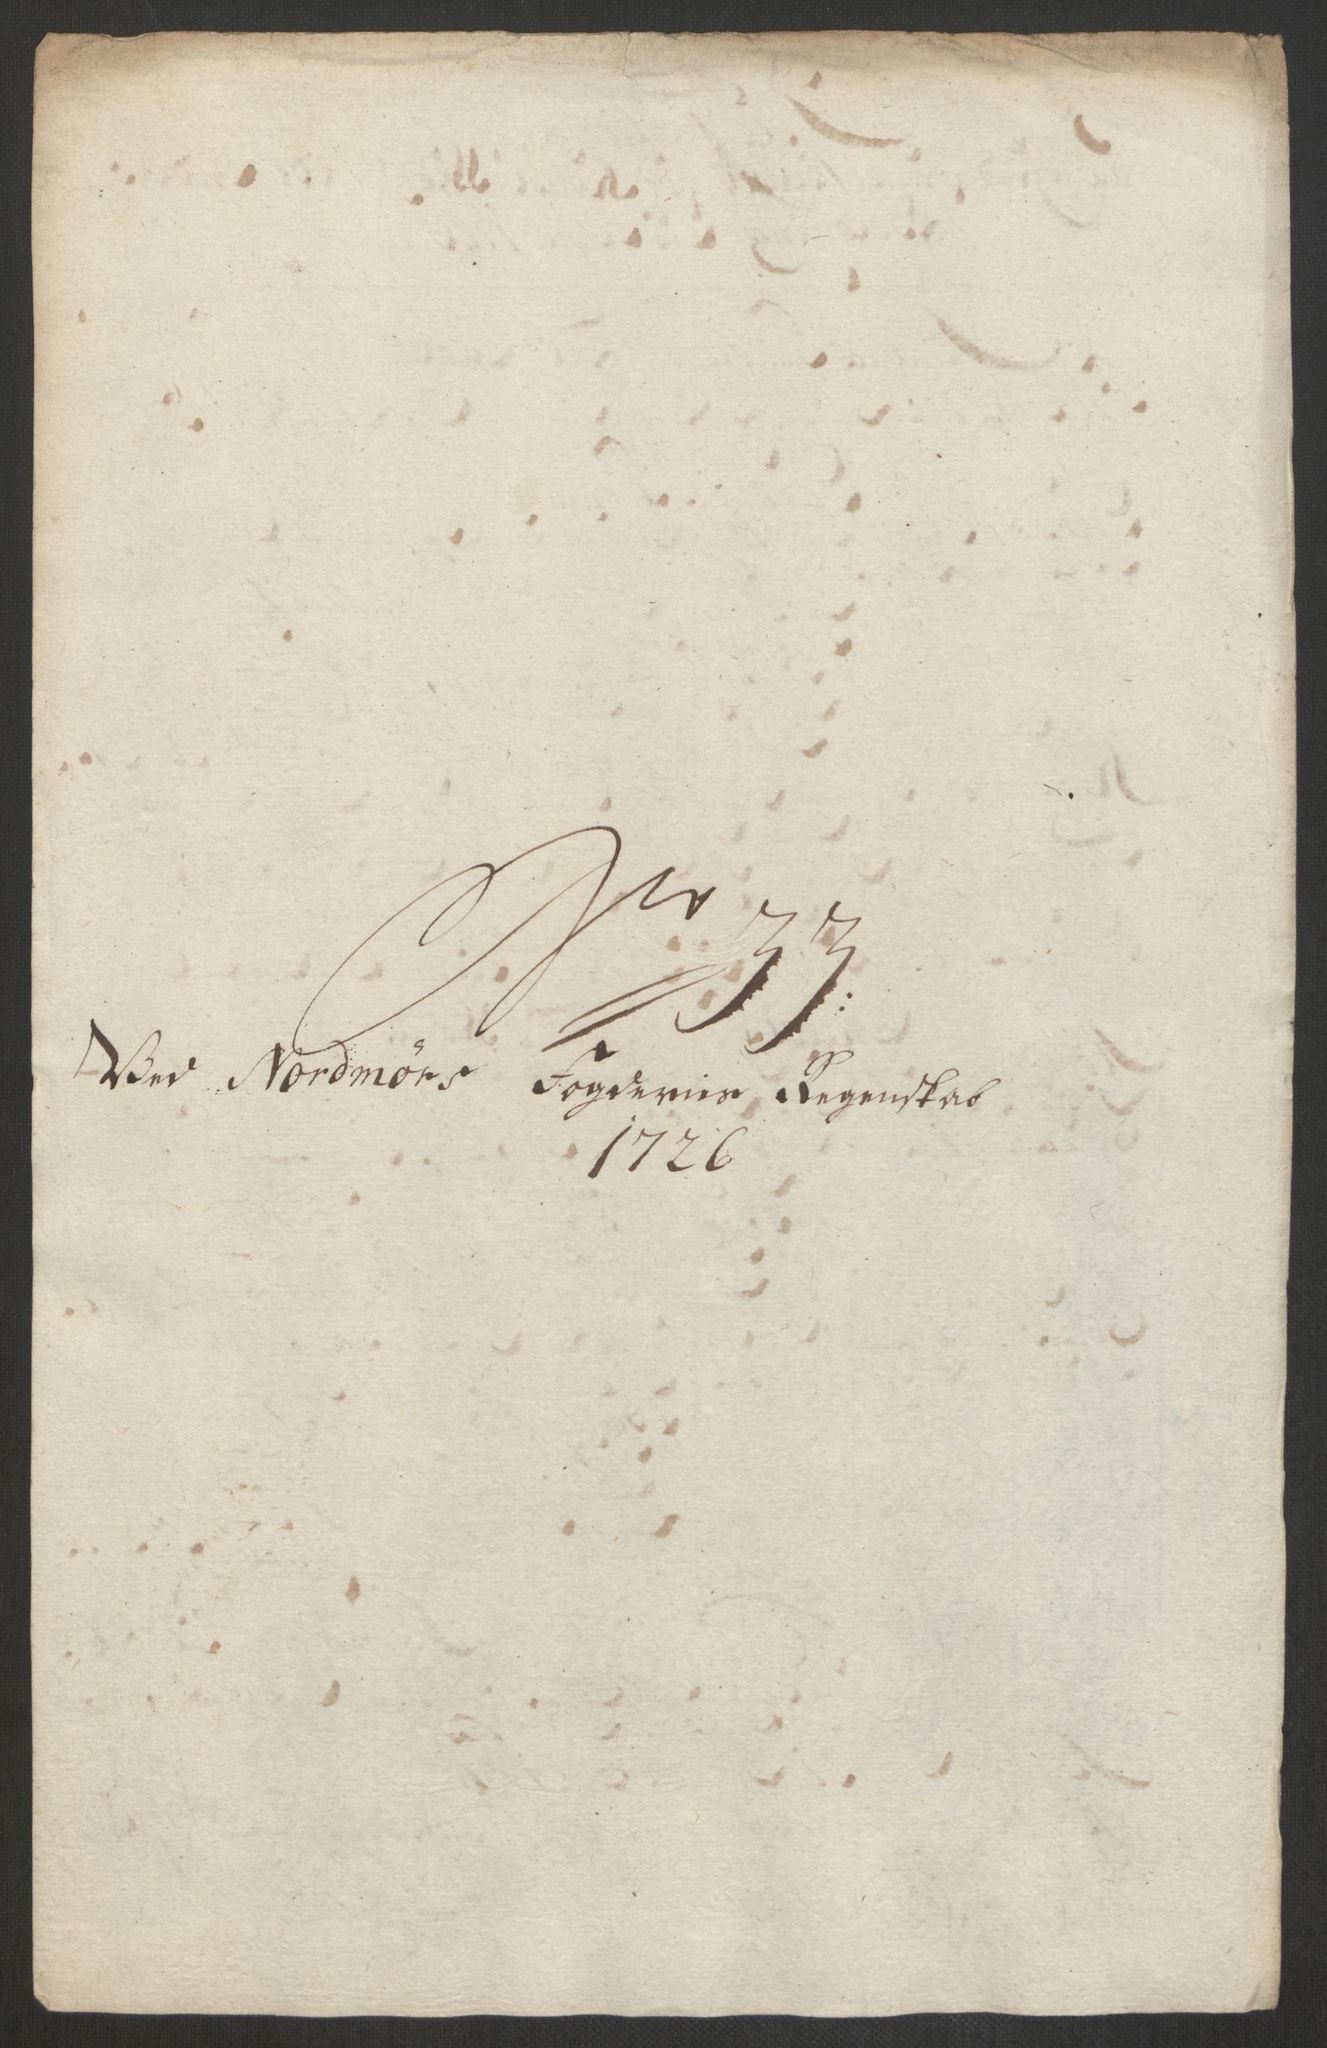 No 33:
Ved Nordmörs Fogderies Regenskab
1726